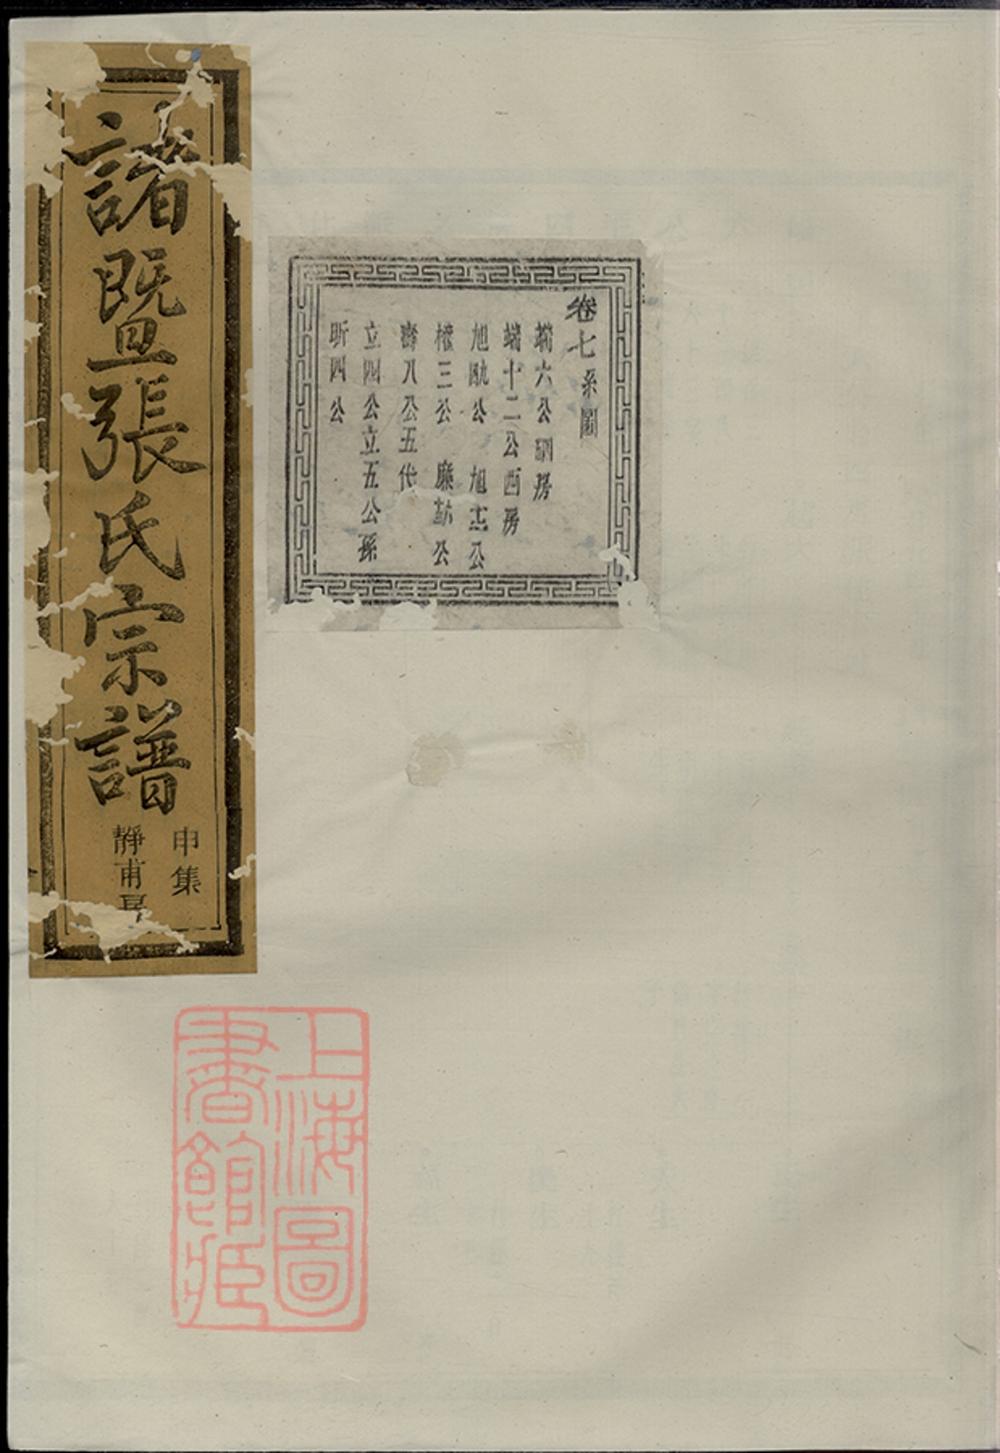 卷七系圖
端六公銅房
端十二公西房
旭 公 旭杰公
三公 廉 公
壽八公五代
立四公立五公孫
昕四公
諸暨張氏宗譜
申集
靜甫房
上海圖書館藏